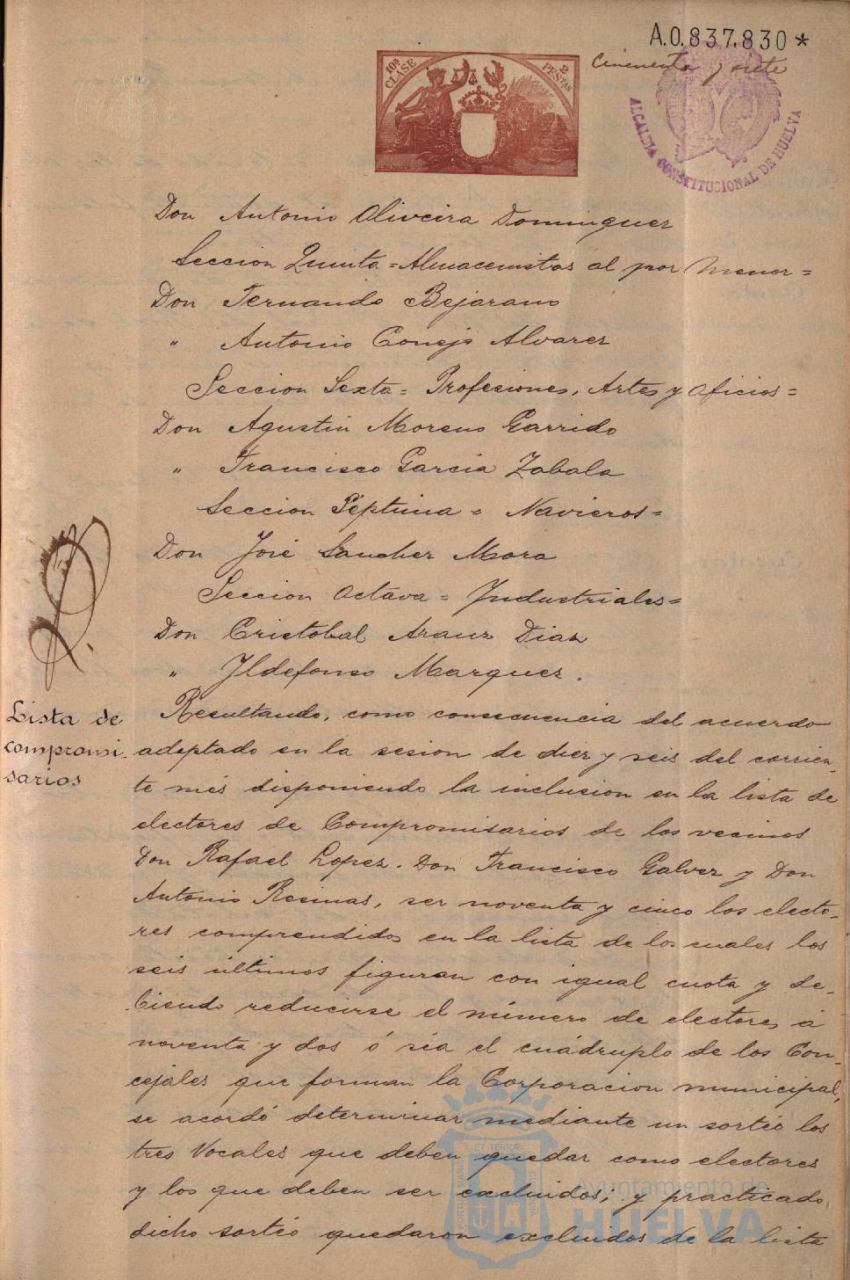 A.0.837.830 *
Cincuenta y siete
10ª CLASE
2 PESETAS
ALCALDIA CONSTITUCIONAL DE HUELVA
Don Antonio Oliveira Dominguez
Seccion Quinta = Almacenistas al por Menor =
Don Fernando Bejarano
" Antonio Conejo Alvarez
Seccion Sexta = Profesiones, Artes y Oficios =
Don Agustin Moreno Garrido
" Francisco Garcia Zabala
Seccion Séptima = Navieros =
Don José Sanchez Mora
Seccion Octava = Industriales =
Don Cristobal Arauz Diaz
" Ildefonso Marquez.
Lista de
compromi-
sarios
Resultando, como consecuencia del acuerdo
adoptado en la sesion de diez y seis del corrien-
te més disponiendo la inclusion en la lista de
electores de Compromisarios de los vecinos
Don Rafael Lopez. Don Francisco Galvez y Don
Antonio Rosinas, ser noventa y cinco los electo-
res comprendidos en la lista de los cuales los
seis últimos figuran con igual cuota y de-
biendo reducirse el número de electores á
noventa y dos ó séa el cuádruplo de los Con-
cejáles que forman la Corporacion municipal,
se acordó determinar mediante un sortéo los
tres Vocales que deben quedar como electores
y los que deben ser excluidos; y practicado
dicho sortéo quedaron excluidos de la lista
Ayuntamiento de
HUELVA